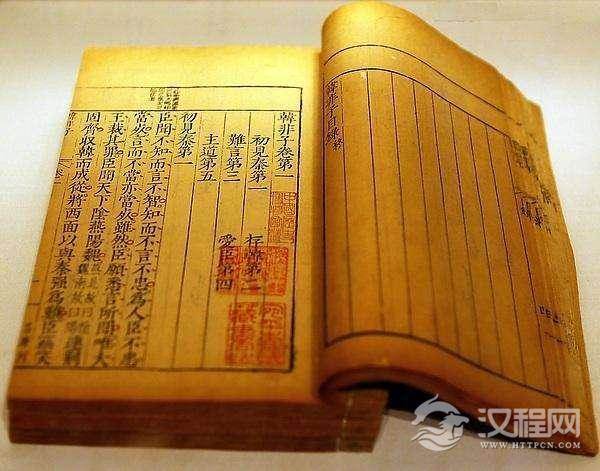 韓非子目録終
韓非子卷第一
初見秦第一 存韓第二
難言第三 愛臣第四
主道第五
初見秦第一
臣聞不知而言不智知而不言不忠為人臣不忠
當死言而不當亦當死雖然臣願悉言所聞唯大
王裁其罪臣聞天下陰燕陽魏連荆
固齊收韓而成從將西面以與秦强爲難臣
汉程网
WWW.HTTPCN.COM